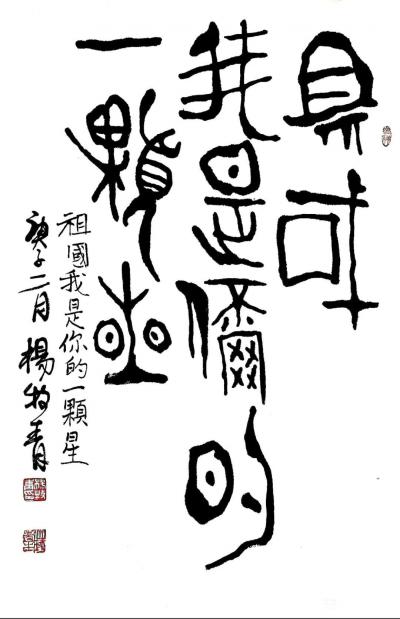 祖國
我是儞的
一顆星
祖國我是你的一顆星
庚子二月楊牧青